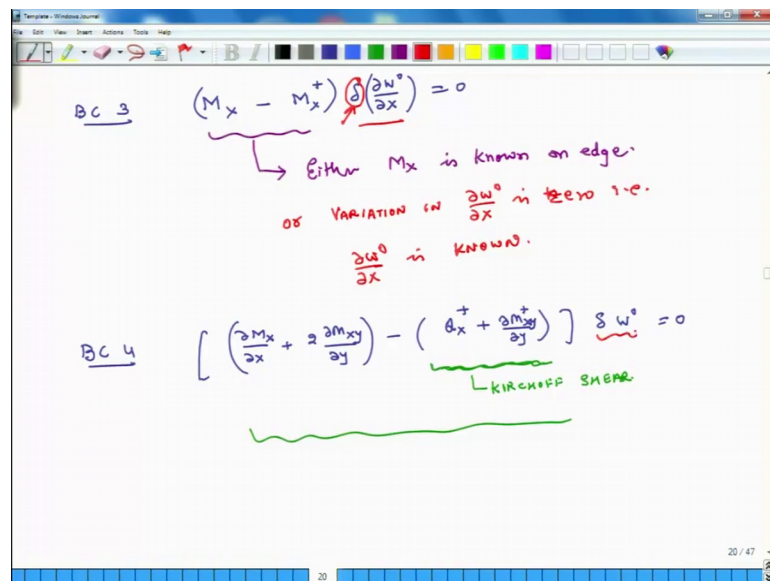 Template - Windows Journal
File Edit View Insert Actions Tools Help
B I
BC 3 (Mₓ - Mₓ⁺) δ(∂w⁰/∂x) = 0
→ Either Mₓ is known on edge.
or VARIATION IN ∂w⁰/∂x is zero i.e.
∂w⁰/∂x is KNOWN.
BC 4 [(∂Mₓ/∂x + 2 ∂Mxy/∂y) - (Qₓ⁺ + ∂Mxy⁺/∂y)] δ w⁰ = 0
KIRCHOFF SHEAR
20 / 47
20